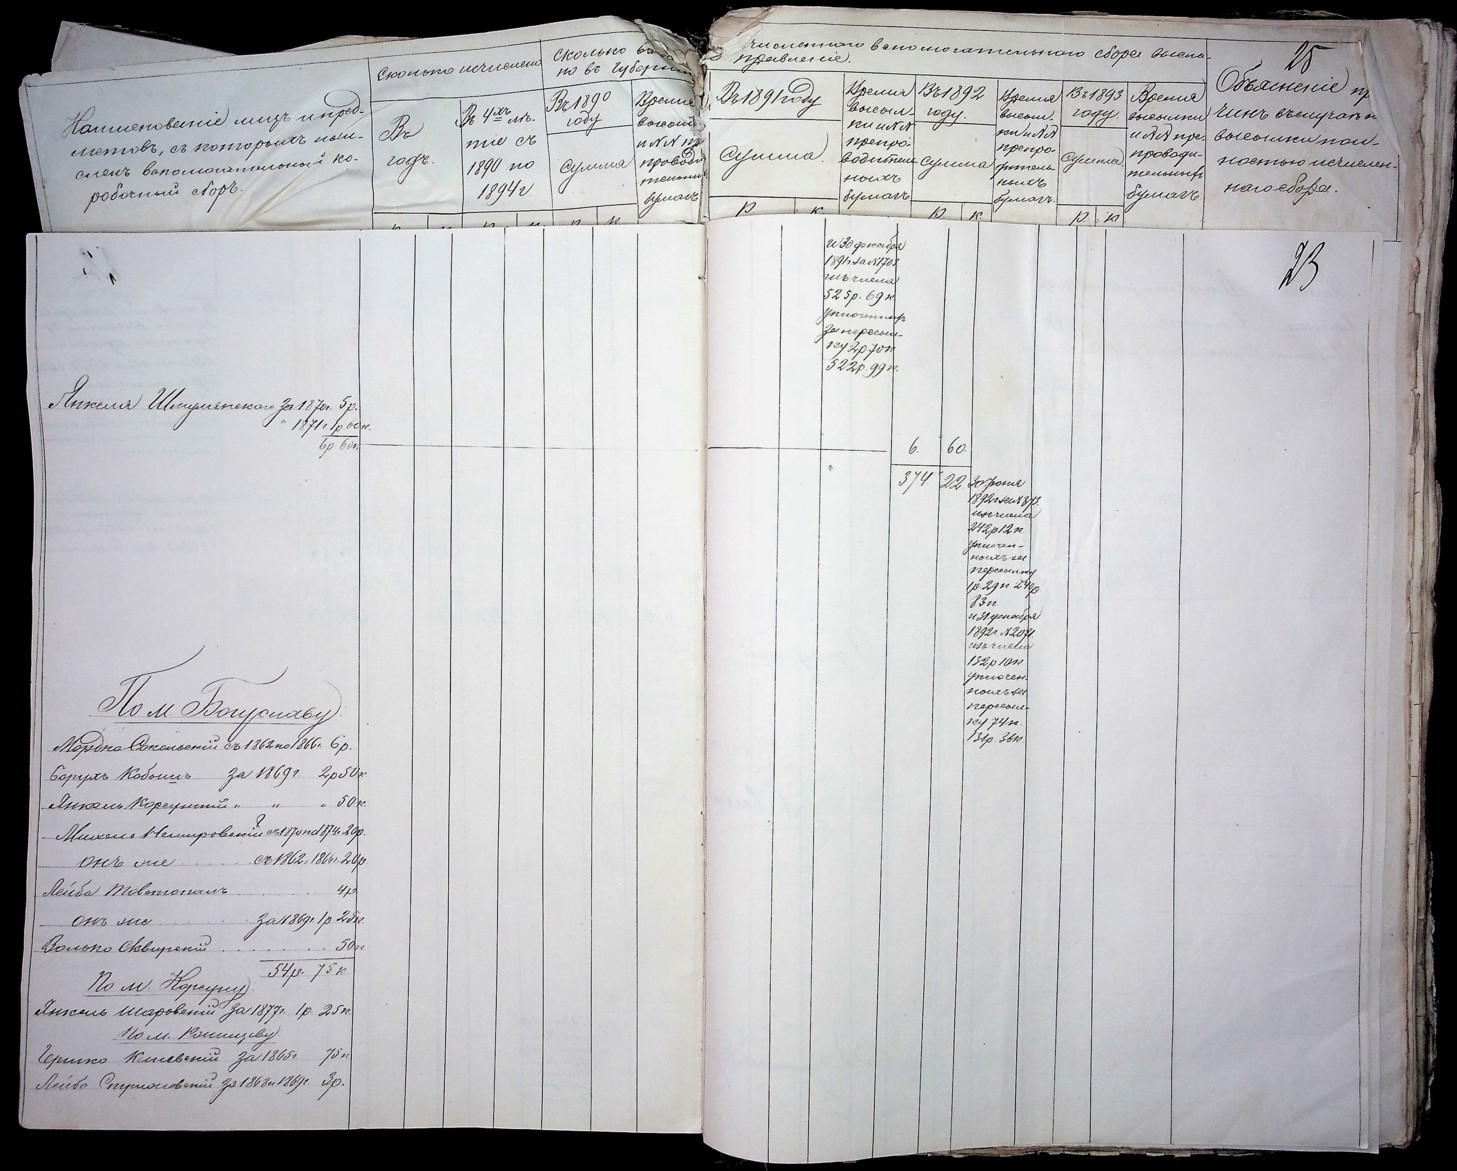 Наименованіе лицъ и пред-
метовъ, съ которыхъ исчи-
сленъ вспомогательный ко-
робочный сборъ.
Сколько исчислено
Въ
годъ.
Въ 4хъ лѣ-
тіе съ
1890 по
1894 г
Сколько
но въ Губерн
Въ 1890
году
Сумма
Время
высылки
и №№ пре
провод
тельныхъ
бумагъ
численнаго вспомогательнаго сбора высла-
правленіе.
Въ 1891 году
Сумма.
Время
высыл-
ки и №№
препро-
водитель
ныхъ
бумагъ
Въ 1892
году.
Сумма
Время
высыл.
ки и №№
препро-
водитель
ныхъ
бумагъ.
Въ 1893
году.
Сумма
Время
высылки
и №№ пре.
проводи-
тельныхъ
бумагъ.
25
Объясненіе пр
чинъ въ случаѣ н
высылки пол-
ностью исчислен-
наго сбора.
р к р к р к
23
и 30 декабря
1891 г за № 1701
изъ числа
525 р. 69 к
уплочен
за пересыл-
ку 2 р 70 к
522 р. 99 к.
Янкеля Шпулянскаго за 1870 г. 5 р.
" 1871 г. 1 р 60 к.
6 р 60 к
6. 60.
374 22
30
1892 г за № 873.
изъ числа
242 р 12 к
уплочен-
ныхъ за
пересылку
1 р 29 к 240 р
83 к
и 31 декабря
1892 г. № 2071
изъ числа
132 р 10 к
уплочен-
ныхъ за
пересыл-
ку 74 к.
131 р. 36 к.
По м. Богуславу
Мордко Сокольскій съ 1862 по 1866 г. 6 р.
Борухъ Кобышъ за 1869 г 2 р 50 к
Янкель Корсунскій " " " 50 к.
Михель Немировскій съ 1870 по 1874 г. 20 р.
онъ же съ 1862 1866 г. 20 р
Лейба Товстопалъ 4 р
онъ же за 1869 г. 1 р. 25 к.
Волько Сквирскій 50 к
54 р. 75 к
По м. Корсуну
Янкель Шаровскій за 1877 г. 1 р. 25 к.
По м.
Гершко Кіевскій за 1865 г. 75 к
Лейба за 1868 и 1869 г. 3 р.